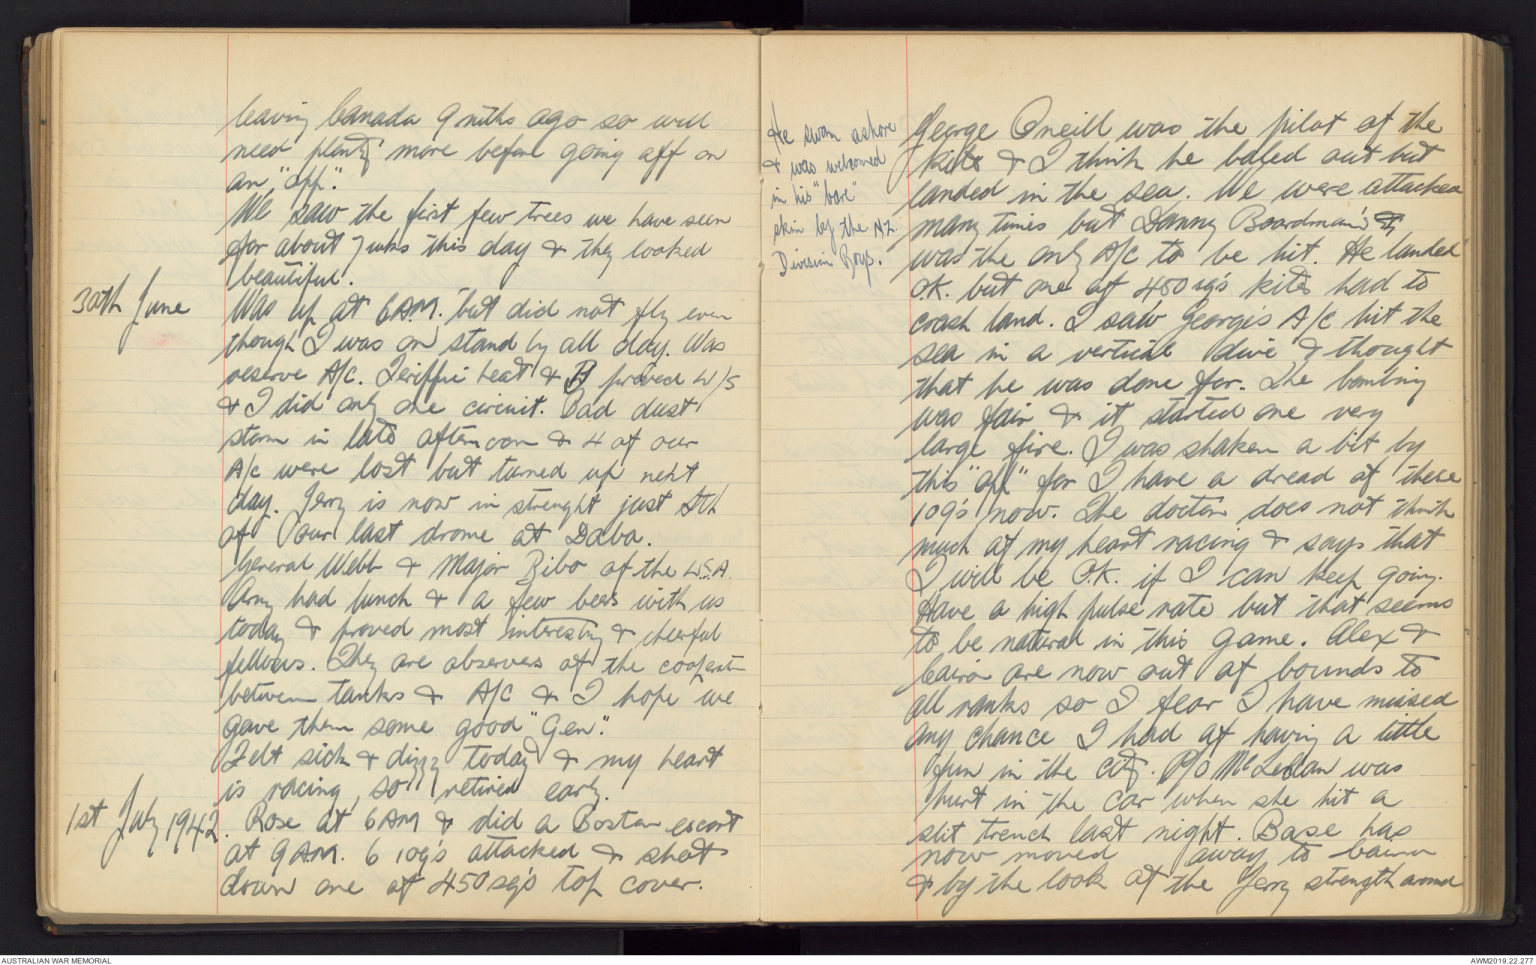 leaving Canada 9 mths ago so will
need plenty more before going off on
an "opp".
We saw the first few trees we have seen
for about 7 wks this day & they looked
beautiful.
30th June
Was up at 6AM, but did not fly even
though I was on stand by all day. Was
reserve A/c. Teriffic heat & it proved U/S
& I did only one circuit. Bad dust
storm in late afternoon & 4 of our
A/c were lost but turned up next
day. Jerry is now in strenght just Sth
of our last drome at Daba.
General Webb & Major Bibo of the U.S.A.
Army had lunch & a few beers with us
today & proved most interesting & cheerful
fellows. They are observers of the cooperation
between tanks & A/C & I hope we
gave them some good "Gen".
Felt sick & dizzy today & my heart
is racing, so retired early.
1st July 1942.
Rose at 6AM & did a Boston escort
at 9AM. 6 109's attacked & shot
down one of 450 sq's top cover.
He swam ashore
& was welcomed
in his "bare"
skin by the N.Z.
Division Boys.
George Oneill was the pilot of the
kite & I think he baled out but
landed in the sea. We were attacked
many times but Danny Boardman's
was the only A/c to be hit. He landed
O.K. but one of 450 sq's kites had to
crash land. I saw Georges A/c hit the
sea in a vertical dive & thought
that he was done for. The bombing
was fair & it started one very
large fire. I was shaken a bit by
this "opp" for I have a dread of these
109's now. The doctor does not think
much of my heart racing & says that
I will be O.K. if I can keep going.
Have a high pulse rate but that seems
to be natural in this game. Alex &
Cairo are now out of bounds to
all ranks so I fear I have missed
any chance I had of having a little
fun in the city. P/O McLellan was
hurt in the car when she hit a
slit trench last night. Base has
now moved away to Cairo
& by the look of the Jerry strength around
AUSTRALIAN WAR MEMORIAL
AWM2019.22.277